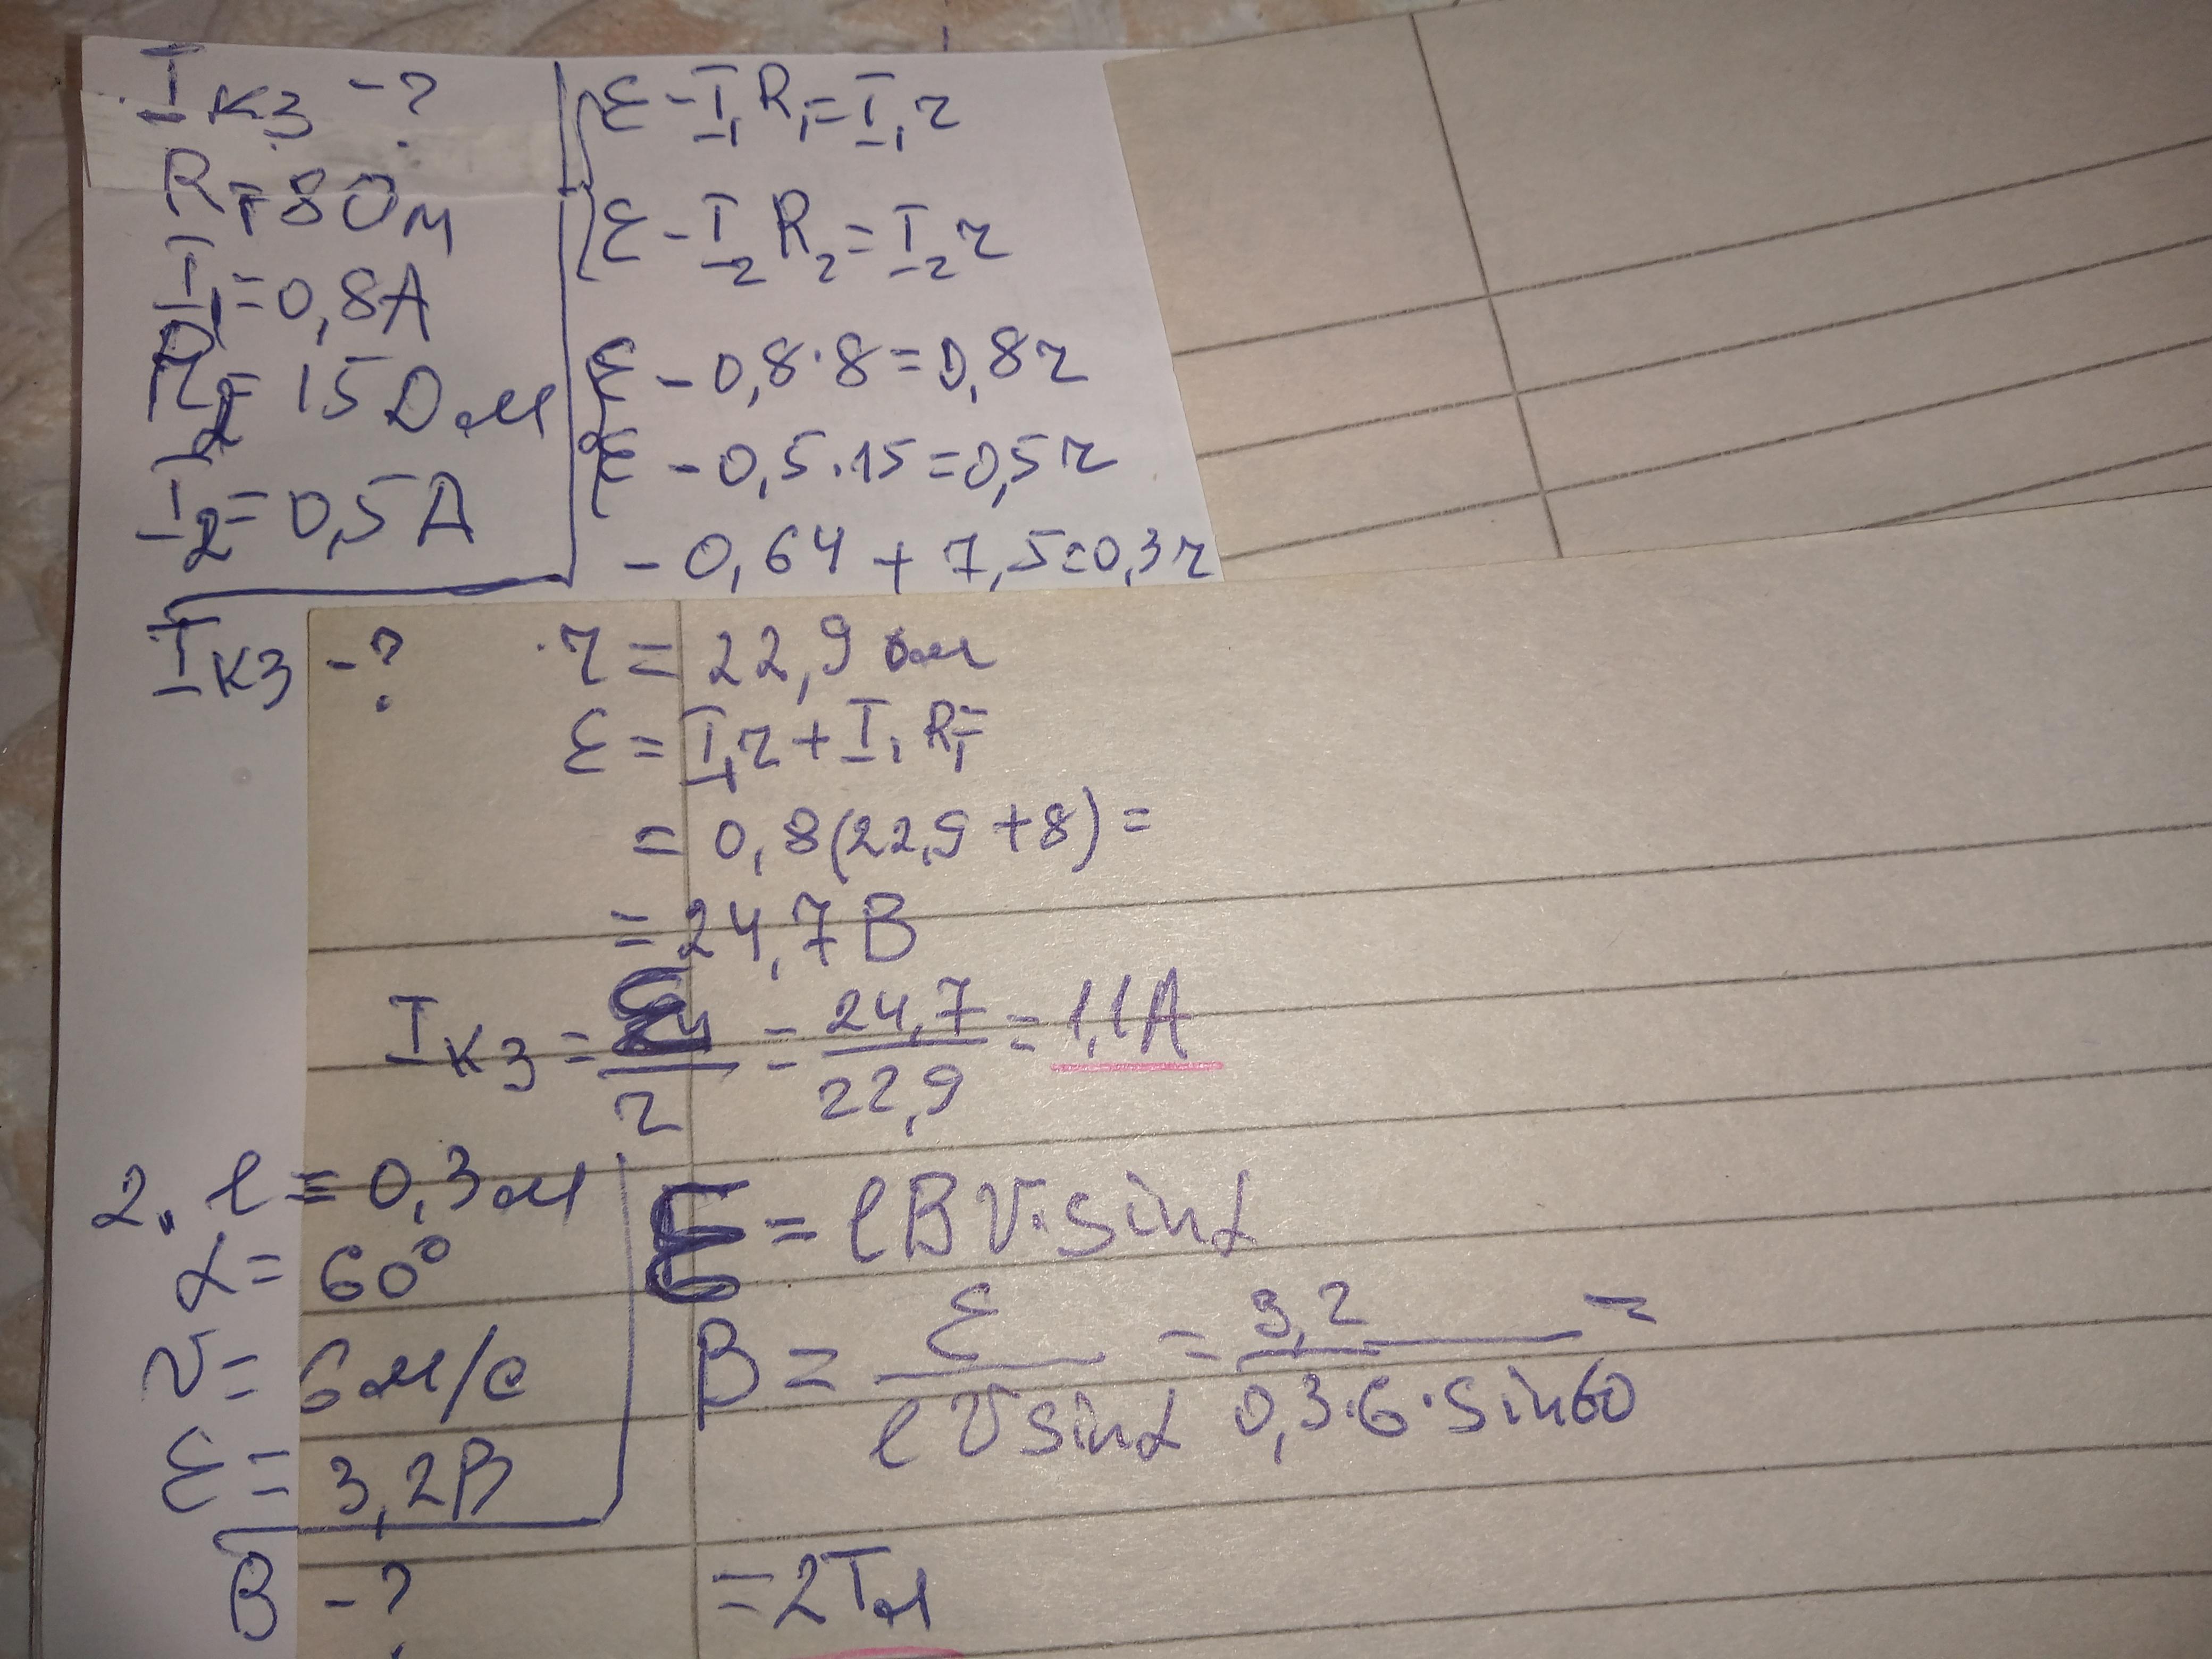 Iкз - ?
R₁=8 Ом
I₁=0,8А
R₂=15 Ом
I₂=0,5А
Iкз - ?
ε - I₁R₁=I₁r
ε - I₂R₂=I₂r
ε - 0,8·8=0,8r
ε - 0,5·15=0,5r
- 0,64 + 7,5=0,3r
r = 22,9 Ом
ε = I₁r + I₁R₁=
= 0,8(22,9+8)=
= 24,7 В
Iкз = ε/r = 24,7/22,9 = 1,1А
2. l = 0,3м
α = 60°
v = 6м/с
ε = 3,2В
B - ?
ε = lBv·sinα
B = ε/lvsinα = 3,2/0,3·6·sin60 =
=2Тл